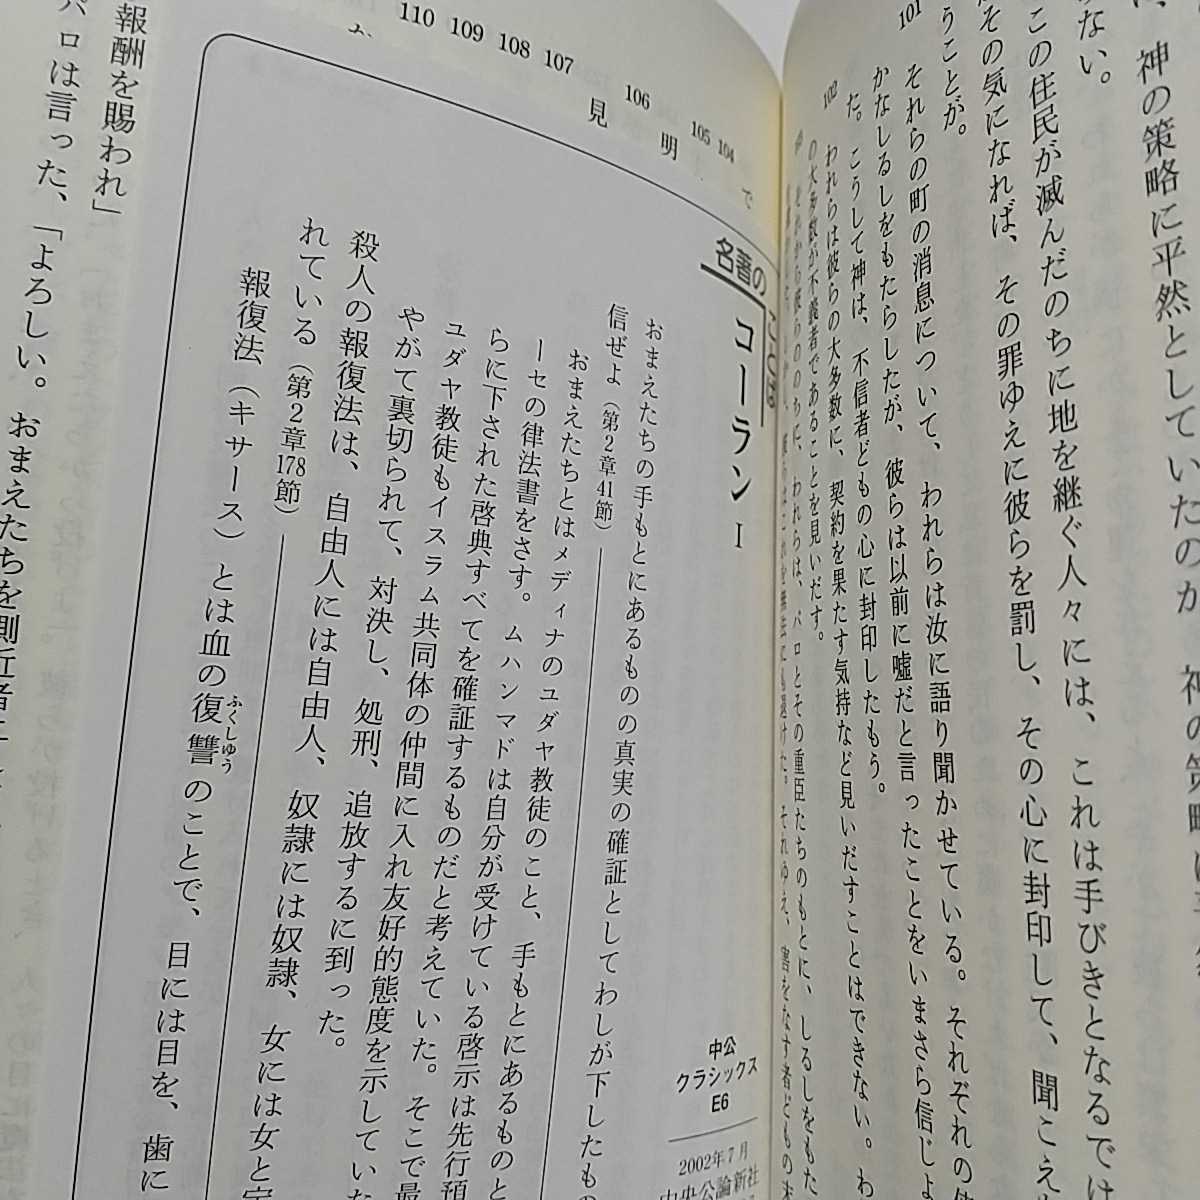 、神の策略に平然としていたのか。神の策略に
ない。
この住民が滅んだのちに地を継ぐ人々には、これは手びきとなるではな
その気になれば、その罪ゆえに彼らを罰し、その心に封印して、聞こえ
うことが。
101 それらの町の消息について、われらは汝に語り聞かせている。それぞれの使
かなしるしをもたらしたが、彼らは以前に嘘だと言ったことをいまさら信じよ
た。こうして神は、不信者どもの心に封印したもう。
102 われらは彼らの大多数に、契約を果たす気持など見いだすことはできない。わ
の大多数が不義者であることを見いだす。
それから彼らののちに、われらは、パロとその重臣たちのもとに、しるしをもた
104
105
106
107
108
109
110
で
明
見
名著のことば
コーラン I
中公
クラシックス
E6
2002年7月
中央公論新社
おまえたちの手もとにあるものの真実の確証としてわしが下したもの
信ぜよ(第2章41節)
おまえたちとはメディナのユダヤ教徒のこと、手もとにあるものと
ーセの律法書をさす。ムハンマドは自分が受けている啓示は先行預
らに下された啓典すべてを確証するものだと考えていた。そこで最
ユダヤ教徒もイスラム共同体の仲間に入れ友好的態度を示していた
やがて裏切られて、対決し、処刑、追放するに到った。
殺人の報復法は、自由人には自由人、奴隷には奴隷、女には女と定
れている(第2章178節)
報復法(キサース)とは血の復讐のことで、目には目を、歯に
ふくしゅう
報酬を賜われ」
パロは言った、「よろしい。おまえたちを側近者に